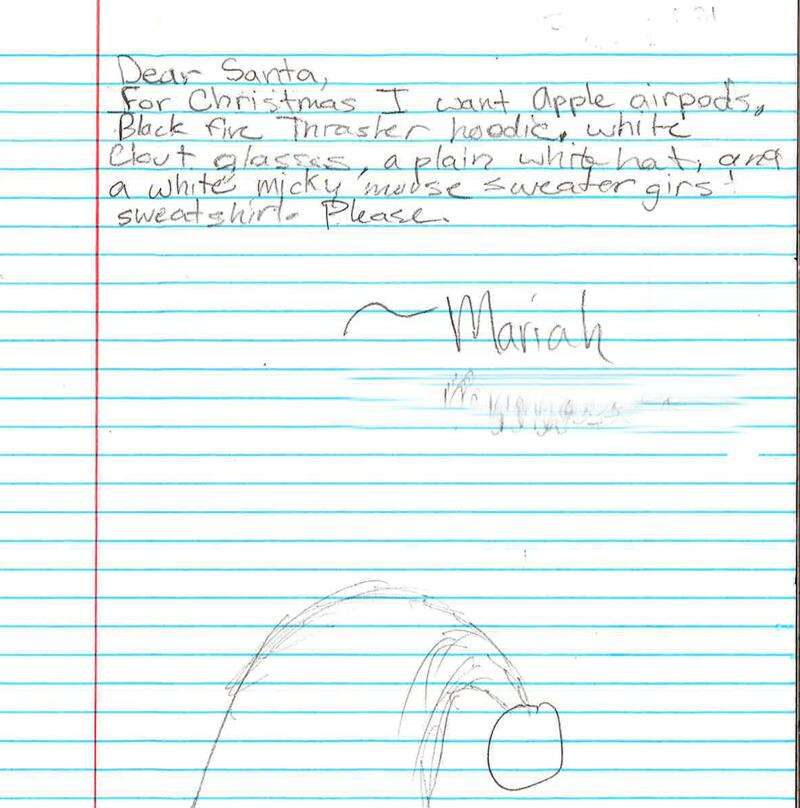 Dear Santa,
For Christmas I want Apple airpods,
Black fire Thraster hoodie, white
Clout glasses, a plain white hat, and
a white micky mouse sweater girs'
sweatshirt. Please.
~Mariah